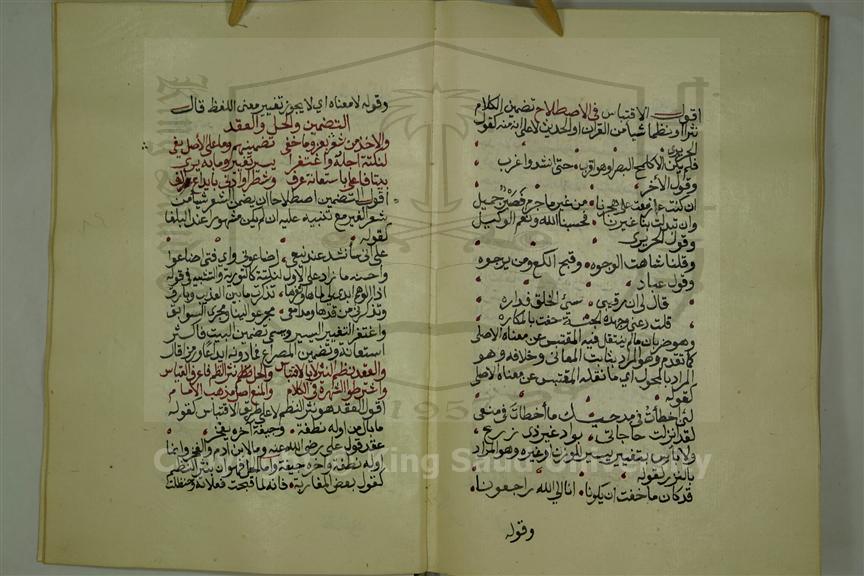 اقول الاقتباس في الاصطلاح تضمين الكلام
نثرا ونظما شيئا من القران او الحديث لا على انه منه كقول
الحريري
فلم يكن الا كلمح البصر او هو اقرب حتى انشد واغرب
وقول الاخر
ان كنت ازمعت على هجرنا من غير ما جرم فصبر جميل
وان تبدلت بنا غيرنا فحسبنا الله ونعم الوكيل
وقول الحريري
وقلنا شاهت الوجوه وقبح اللكع ومن يرجوه
وقول عباد
قال لي ان رقيبي سيئ الخلق فداره
قلت دعني وجهك الجنة حفت بالمكاره
وهو ضربان ما لم ينقل فيه المقتبس عن معناه الاصلي
كما تقدم وهو المراد بثابت المعاني وخلافه وهو
المراد بالمحول اي ما نقل فيه المقتبس عن معناه الاصلي
كقوله
لئن اخطات في مدحيك ما اخطات في منعي
لقد انزلت حاجاتي بواد غير ذي زرع
ولا باس بتغيير يسير للوزن او غيره وهو المراد
بالنزر كقوله
قد كان ما خفت ان يكونا انا الى الله راجعونا
وقوله
وقوله لا معناه اي لا يجوز تغيير معنى اللفظ قال
التضمين والحل والعقد
والاخذ من شعر بعزو ما خفي تضمينهم وما على الاصل يفي
لنكتة اجله واغتفرا يسير تغيير وما منه يرى
بيتا فاعلى باستعانة عرف وشطرا او ادنى بايداع الف
اقول التضمين اصطلاحا ان يضمن الشعر شيئا من
شعر الغير مع تنبيه عليه ان لم يكن مشهورا عند البلغا
كقوله
على اني سانشد عند بيعي اضاعوني واي فتى اضاعوا
واحسنه ما زاد على الاول لنكتة كالتورية والتشبيه في قوله
اذا الوهم ابدى لي لماها وثغرها تذكرت ما بين العذيب وبارق
وتذكرني من قدها ومدامعي مجر عوالينا ومجرى السوابق
واغتفر التغيير اليسير ويسمى تضمين البيت فاكثر
استعانة وتضمين المصراع فما دونه ايداعا ورمز قال
والعقد نظم النثر لا بالاقتباس والحل نثر النظم فاعرف القياس
واشترط الشهرة في الكلام والمنع اصل مذهب الامام
اقول العقد هو نثر النظم لا على طريق الاقتباس كقوله
ما بال من اوله نطفة وجيفة اخره يفخر
عقد قول علي رضي الله عنه وما لابن ادم والفخر وانما
اوله نطفة واخره جيفة واما الحل فهو ان ينثر النظم
كقول بعض المغاربة فانه لما قبحت فعلاته وحنظلت